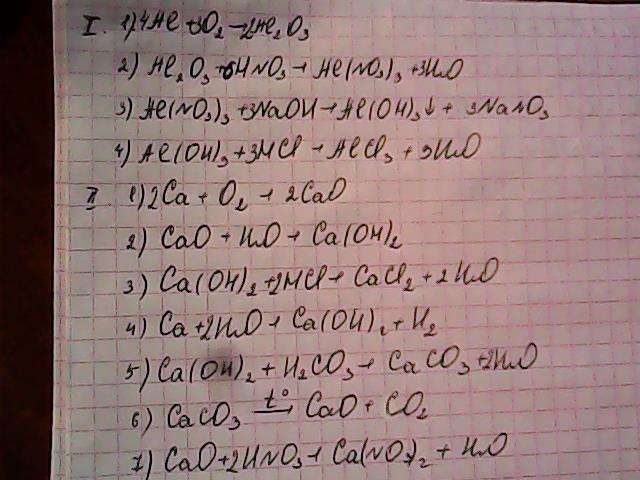 I. 1) 4Al + 3O₂ → 2Al₂O₃
2) Al₂O₃ + 6HNO₃ → Al(NO₃)₃ + 3H₂O
3) Al(NO₃)₃ + 3NaOH → Al(OH)₃↓ + 3NaNO₃
4) Al(OH)₃ + 3HCl → AlCl₃ + 3H₂O
II. 1) 2Ca + O₂ → 2CaO
2) CaO + H₂O → Ca(OH)₂
3) Ca(OH)₂ + 2HCl → CaCl₂ + 2H₂O
4) Ca + 2H₂O → Ca(OH)₂ + H₂
5) Ca(OH)₂ + H₂CO₃ → CaCO₃ + 2H₂O
6) CaCO₃ t°→ CaO + CO₂
7) CaO + 2HNO₃ → Ca(NO₃)₂ + H₂O